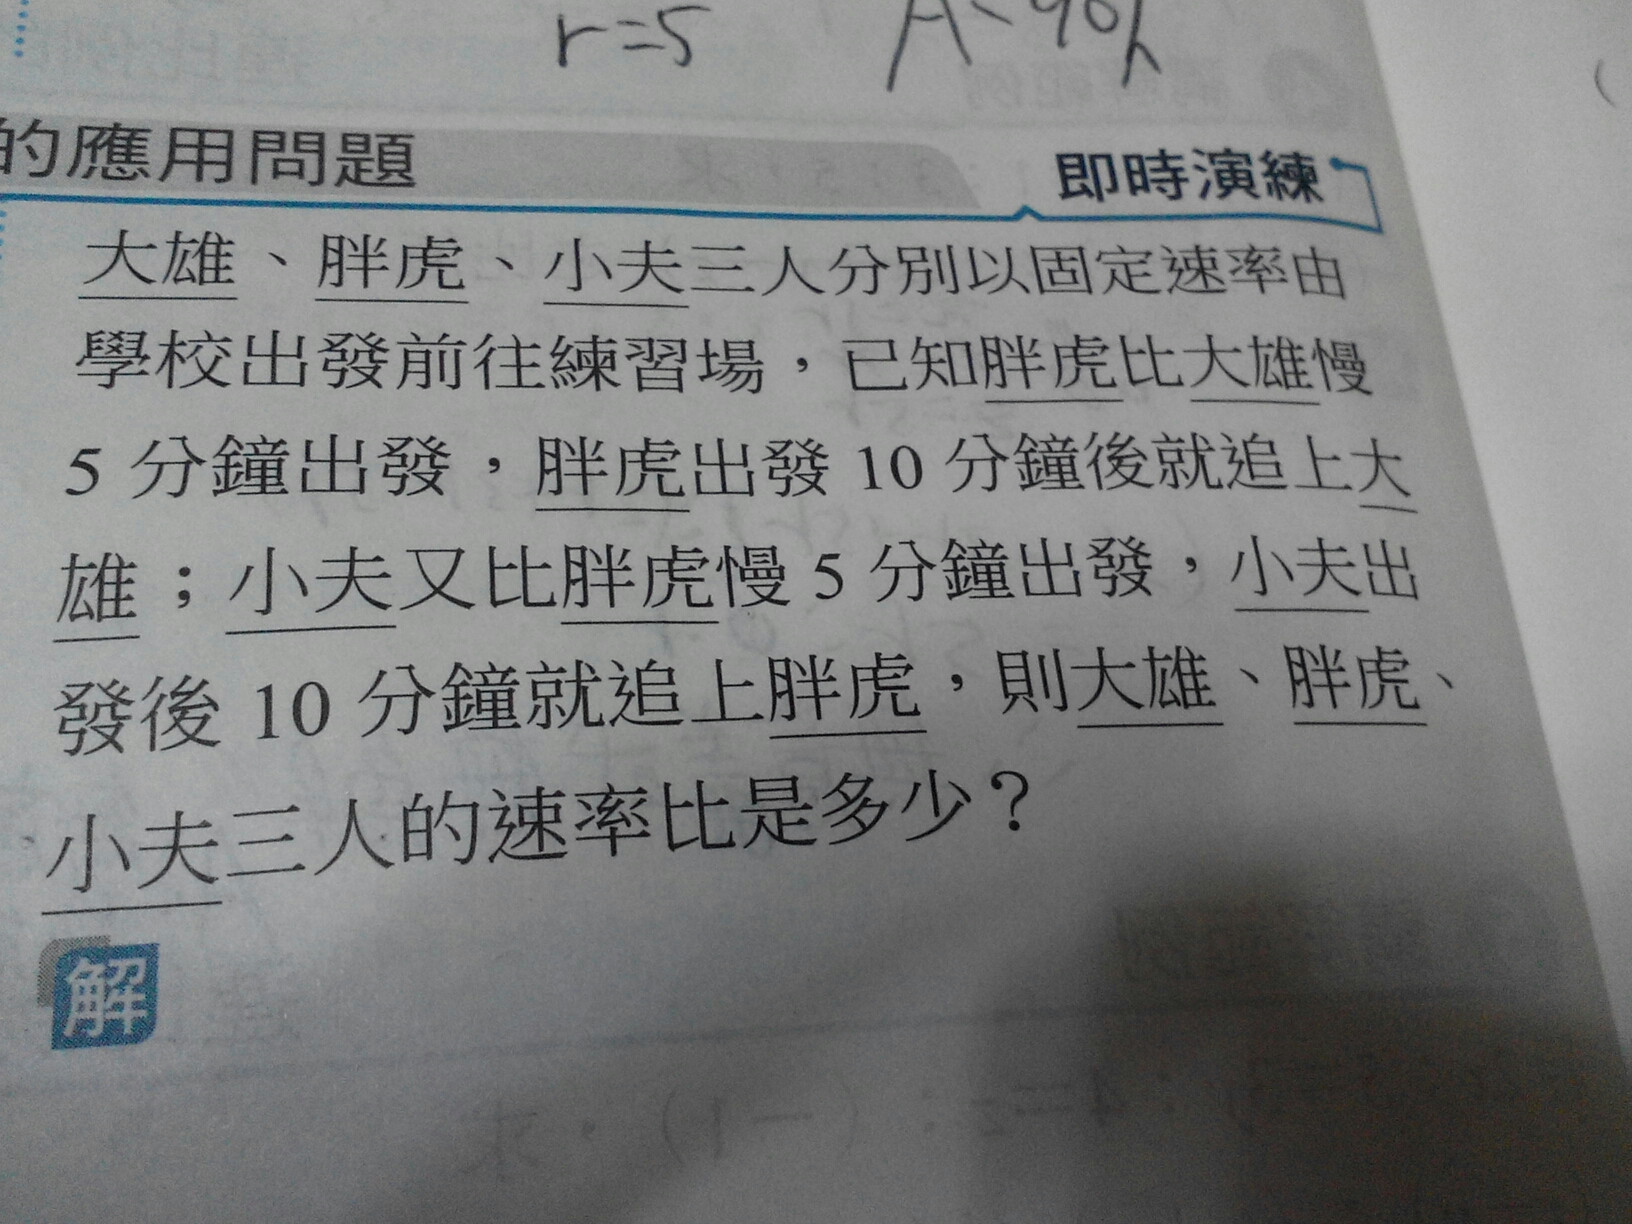 r=5
的應用問題
即時演練
大雄、胖虎、小夫三人分別以固定速率由
學校出發前往練習場，已知胖虎比大雄慢
5 分鐘出發，胖虎出發 10 分鐘後就追上大
雄；小夫又比胖虎慢 5 分鐘出發，小夫出
發後 10 分鐘就追上胖虎，則大雄、胖虎、
小夫三人的速率比是多少？
解